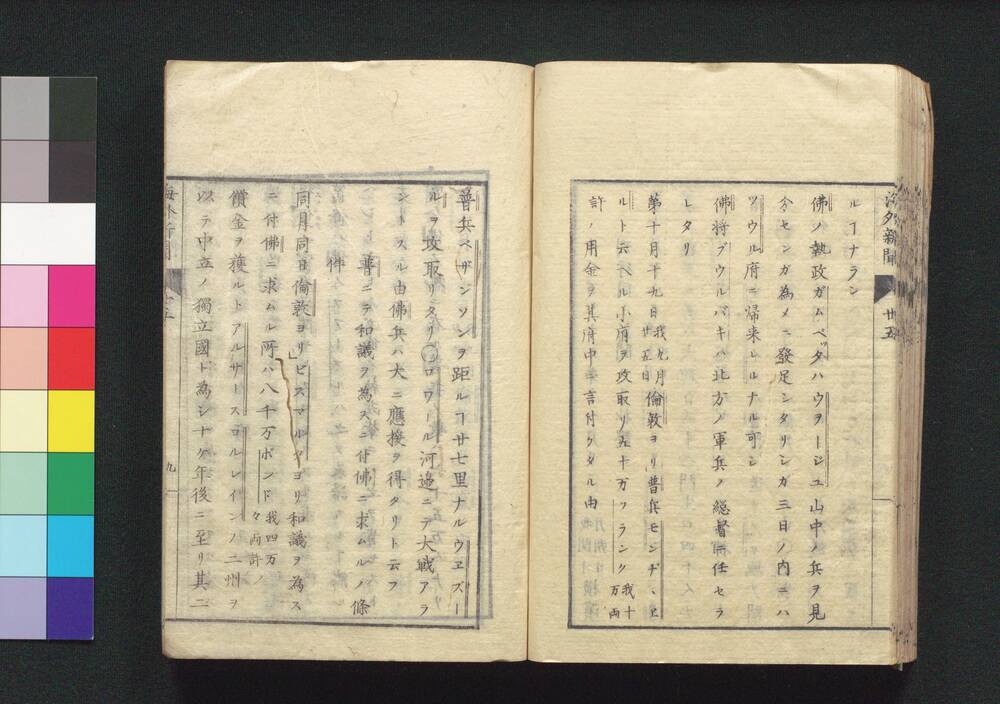 海外新聞
廿五
ルヿナラン
佛ノ執政ガムベッタハウヲージユ山中ノ兵ヲ見
今センガ為メニ發足シタリシガ三日ノ内ニハ
ツウル府ニ帰来レルナル可シ
佛將ブウルバキハ北方ノ軍兵ノ総督ニ任セラ
レタリ
第十月十九日我九月廿五日倫敦ヨリ普兵モンヂヾヱ
ルト云ヘル小府ヲ攻取リ五十万フランク我十万両
許ノ用金ヲ其府中ニ言付ケタル由
普兵ベザンソンヲ距ルヿ廿七里ナルウヱズー
ルヲ攻取リタリ○ロワール河邉ニテ大戰アラ
ントスル由佛兵ハ大ニ應援ヲ得タリト云フ
普ニテ和議ヲ為スニ付佛ニ求ムルノ條
件
同月同日倫敦ヨリビスマルクヨリ和議ヲ為ス
ニ付佛ニ求ムル所ハ八千万ポンド我四万々両許ノ
償金ヲ獲ルトアルサースロルレイインノ二州ヲ
以テ中立ノ獨立國ト為シナケ年後ニ至リ其二
海外新聞
九